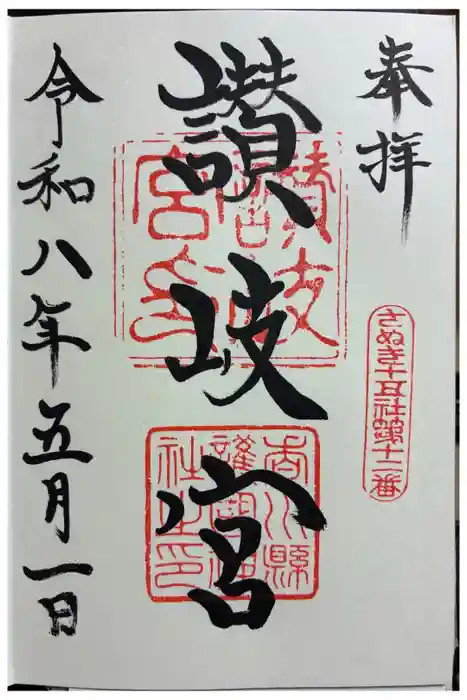 奉拝
さぬき十五社第十二番
讃岐宮
讃岐宮印
香川縣護國神社之印
令和八年五月一日